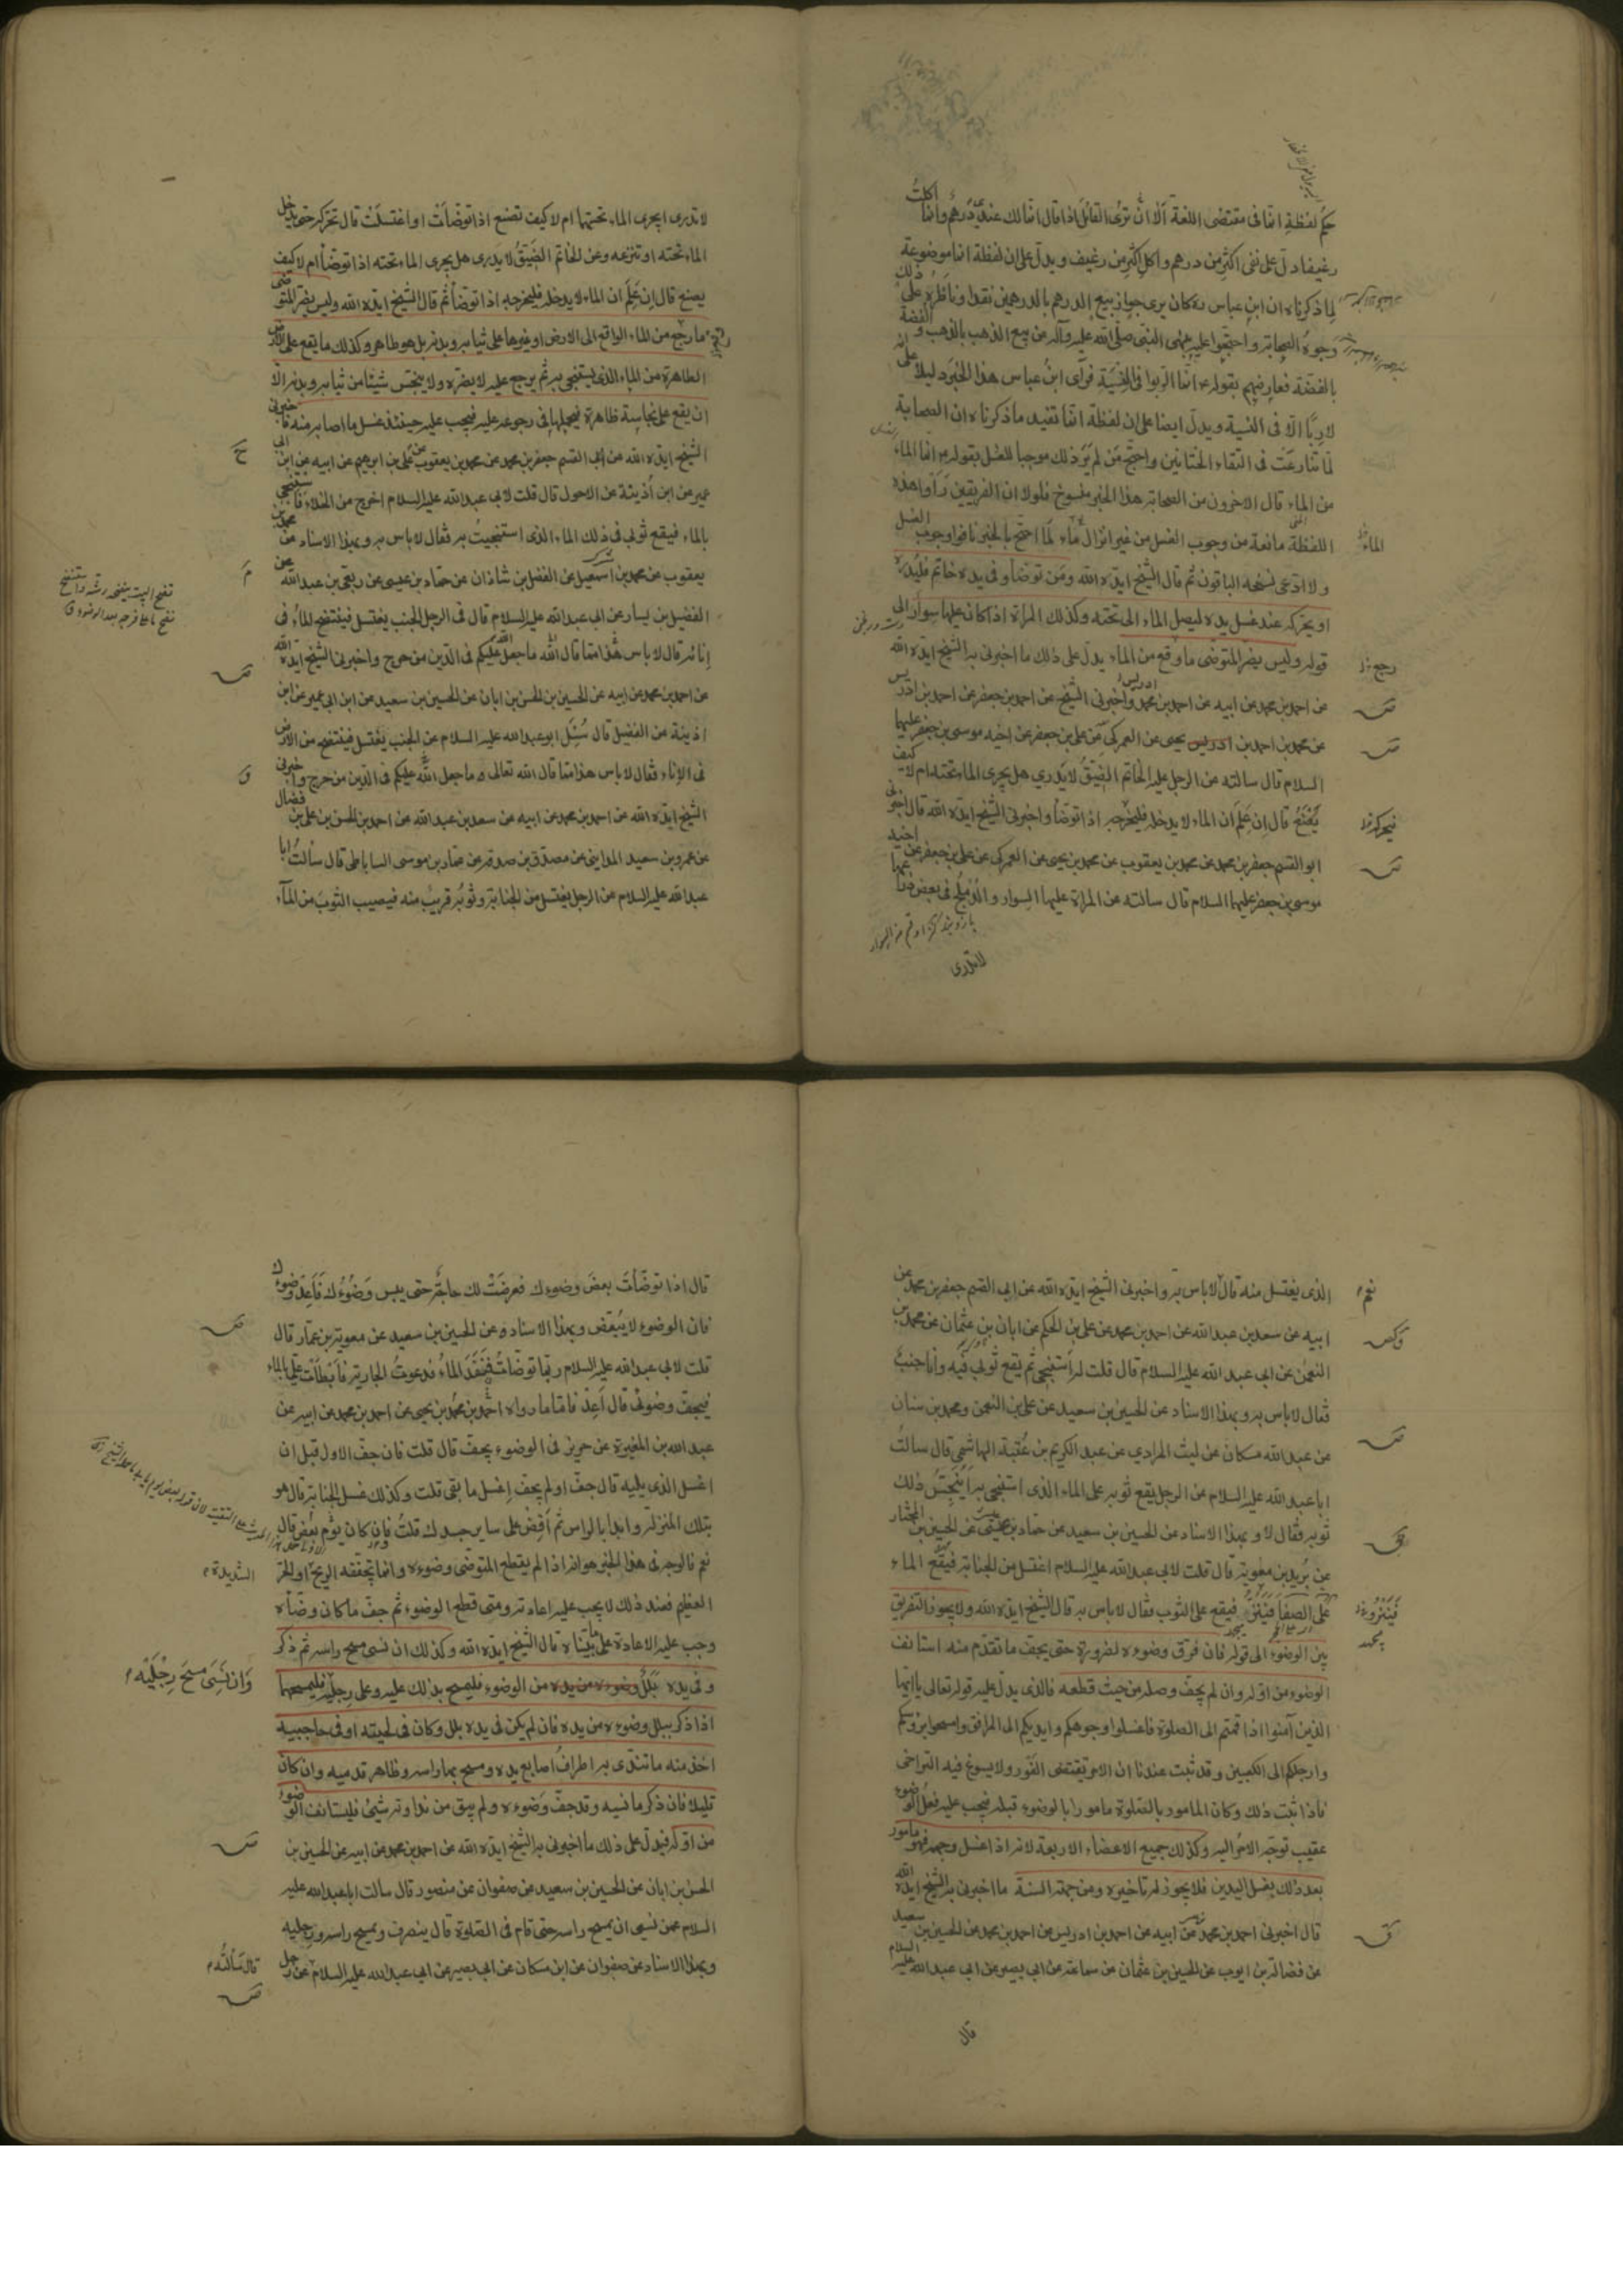 حكم لفظة انما فى مقتضى اللغة ألا ان ترى القائل اذا قال انما لك عندى درهم وانما اكلت
رغيفا دل على نفى اكثر من درهم واكل اكثر من رغيف ويدل على ان لفظة انما موضوعة
لما ذكرناه ان ابن عباس ره كان يرى جواز بيع الدرهم بالدرهمين نقدا وناظره على ذلك
وجوه الصحابة واحتجوا عليه بنهى النبى صلى الله عليه وآله عن بيع الذهب بالذهب و الفضة
بالفضة فعارضهم بقوله ع انما الربوا فى النسية فرأى ابن عباس هذا الخبر دليلا على انه
لا ربا الا فى النسية ويدل ايضا على ان لفظة انما تفيد ما ذكرناه ان الصحابة
لما تنازعت فى التقاء الختانين واحتج من لم ير ذلك موجبا للغسل بقوله ع انما الماء
من الماء قال الاخرون من الصحابة هذا الخبر منسوخ فلولا ان الفريقين رأوا هذه
اللفظة مانعة من وجوب الغسل من غير انزال الماء لما احتج بالخبر نافوا وجوب الغسل
الماء
ولا ادعى نسخه الباقون ثم قال الشيخ ايده الله ومن توضأ وفى يده خاتم فليدره
او يحركه عند غسل يده ليصل الماء الى تحته وكذلك المراة اذا كان عليها سوار الى
قوله وليس يضر المتوضى ما وقع من الماء يدل على ذلك ما اخبرنى به الشيخ ايده الله
رجع
عن احمد بن محمد عن ابيه عن احمد بن محمد واخبرنى الشيخ عن احمد بن جعفر عن احمد بن ادريس
عن محمد بن احمد بن يحيى عن العمركى عن على بن جعفر عن اخيه موسى بن جعفر عليهما
السلام قال سالته عن الرجل عليه الخاتم الضيق لا يدري هل يجرى الماء تحته ام لا كيف
يصنع قال ان علم ان الماء لا يدخله فليخرجه اذا توضأ واخبرنى الشيخ ايده الله قال اخبرنى
فيحركه
ابو القسم جعفر بن محمد عن محمد بن يعقوب عن محمد بن يحيى عن العمركى عن على بن جعفر عن اخيه
موسى بن جعفر عليهما السلام قال سالته عن المراة عليها السوار والدملج فى بعض ذراعها
لا تدرى
لا تدرى ايجرى الماء تحتهما ام لا كيف تصنع اذا توضأت او اغتسلت قال تحركه حتى يدخل
الماء تحته او تنزعه وعن الخاتم الضيق لا يدرى هل يجرى الماء تحته اذا توضأ ام لا كيف
يصنع قال ان علم ان الماء لا يدخله فليخرجه اذا توضأ ثم قال الشيخ ايده الله وليس يضر المتوضى
ما رجع من الماء الواقع الى الارض او غيرها على ثيابه وبدنه بل هو طاهر وكذلك ما يقع على الارض
الطاهرة من الماء الذى يستنجى به ثم يرجع عليه لا يضره ولا ينجس شيئا من ثيابه وبدنه الا
ان يقع على نجاسة ظاهرة فيحملها فى رجوعه عليه فيجب عليه حينئذ غسل ما اصابه منه فاخبرنى
الشيخ ايده الله عن ابى القسم جعفر بن محمد عن محمد بن يعقوب عن على بن ابرهيم عن ابيه عن ابن ابى
عمير عن ابن أذينة عن الاحول قال قلت لابى عبد الله عليه السلام اخرج من الخلاء فاستنجى
بالماء فيقع ثوبى فى ذلك الماء الذى استنجيت به فقال لا باس به وبهذا الاسناد عن محمد بن
يعقوب عن محمد بن اسمعيل عن الفضل بن شاذان عن حماد بن عيسى عن ربعى بن عبد الله عن
الفضيل بن يسار عن ابى عبد الله عليه السلام قال فى الرجل الجنب يغتسل فينتضح الماء فى
إنائه قال لا باس هذا مما قال الله ما جعل الله عليكم فى الدين من حرج واخبرنى الشيخ ايده الله
عن احمد بن محمد عن ابيه عن الحسين بن الحسن بن ابان عن الحسين بن سعيد عن ابن ابى عمير عن ابن
اذينة عن الفضيل قال سئل ابو عبد الله عليه السلام عن الجنب يغتسل فينتضح من الارض
فى الإناء فقال لا باس هذا مما قال الله تعالى ما جعل الله عليكم فى الدين من حرج واخبرنى
الشيخ ايده الله عن احمد بن محمد عن ابيه عن سعد بن عبد الله عن احمد بن الحسن بن على بن فضال
عن عمرو بن سعيد المداينى عن مصدق بن صدقة عن عمار بن موسى الساباطى قال سألت ابا
عبد الله عليه السلام عن الرجل يغتسل من الجنابة وثوبه قريب منه فيصيب الثوب من المآء
الذى يغتسل منه قال لا باس به واخبرنى الشيخ ايده الله عن ابى القسم جعفر بن محمد عن
نعم
ابيه عن سعد بن عبد الله عن احمد بن محمد عن على بن الحكم عن ابان بن عثمان عن محمد بن
النعمن عن ابى عبد الله عليه السلام قال قلت له أستنجى ثم يقع ثوبى فيه وأنا جنب
فقال لا باس به وبهذا الاسناد عن الحسين بن سعيد عن على بن النعمن ومحمد بن سنان
عن عبد الله مسكان عن ليث المرادي عن عبد الكريم بن عتبة الهاشمي قال سالت
ابا عبد الله عليه السلام عن الرجل يقع ثوبه على الماء الذى استنجى به أينجس ذلك
ثوبه فقال لا وبهذا الاسناد عن الحسين بن سعيد عن حماد بن عيسى عن الحسين بن المختار
عن بريد بن معوية قال قلت لابى عبد الله عليه السلام اغتسل من الجنابة فيقع الماء
على الصفا فينزو فيقع على الثوب فقال لا باس به قال الشيخ ايده الله ولا يجوز التفريق
فينزو
بين الوضوء الى قوله فان فرق وضوءه لضرورة حتى يجف ما تقدم منه استانف
الوضوء من اوله وان لم يجف وصله من حيث قطعه فالذى يدل عليه قوله تعالى يا ايها
الذين آمنوا اذا قمتم الى الصلوة فاغسلوا وجوهكم وايديكم الى المرافق وامسحوا برؤسكم
وارجلكم الى الكعبين وقد ثبت عندنا ان الامر يقتضى الفور ولا يسوغ فيه التراخى
فاذا ثبت ذلك وكان المامور بالصلوة مامورا بالوضوء قبله فيجب عليه فعل الوضوء
عقيب توجه الامر اليه وكذلك جميع الاعضاء الاربعة لانه اذا غسل وجهه فهو مامور
بعد ذلك بغسل اليدين فلا يجوز له تاخيره ومن جهة السنة ما اخبرنى به الشيخ ايده الله
قال اخبرنى احمد بن محمد عن ابيه عن احمد بن ادريس عن احمد بن محمد عن الحسين بن سعيد
عن فضالة بن ايوب عن الحسين بن عثمان عن سماعة عن ابى بصير عن ابى عبد الله عليه السلام
قال
قال اذا توضأت بعض وضوءك فعرضت لك حاجة حتى يبس وضوءك فأعد وضوءك
فان الوضوء لا يتبعض وبهذا الاسناد عن الحسين بن سعيد عن معوية بن عمار قال
قلت لابى عبد الله عليه السلام ربما توضأت فنفد الماء فدعوت الجارية فابطأت علي بالماء
فيجف وضوئى قال أعد فاما ما رواه احمد بن محمد بن يحيى عن احمد بن محمد عن ابيه عن
عبد الله بن المغيرة عن حريز فى الوضوء يجف قال قلت فان جف الاول قبل ان
اغسل الذى يليه قال جف او لم يجف إغسل ما بقى قلت وكذلك غسل الجنابة قال هو
بتلك المنزلة وابدأ بالراس ثم أفض على ساير جسدك قلت فإن كان بعض يوم قال
نعم فالوجه فى هذا الخبر هو انه اذا لم يقطع المتوضى وضوءه وانما تجففه الريح او الحر
الشديدة
العظيم فعند ذلك لا يجب عليه اعادته ومتى قطع الوضوء ثم جف ما كان وضأه
وجب عليه الاعادة على ما بيناه قال الشيخ ايده الله وكذلك ان نسى مسح راسه ثم ذكر
وفى يده بلل من الوضوء فليمسح بذلك عليه وعلى رجليه فليمسحهما
وان نسى مسح رجليه
اذا ذكر ببلل وضوءه من يده فان لم يكن فى يده بلل وكان فى لحيته او فى حاجبيه
اخذ منه ما تندى به اطراف اصابع يده ومسح بها راسه وظاهر قدميه وان كان
قليلا فان ذكر ما نسيه وقد جف وضوءه ولم يبق من نداوته شئ فليستانف الوضوء
من اوله فيدل على ذلك ما اخبرنى به الشيخ ايده الله عن احمد بن محمد عن ابيه عن الحسين بن
الحسن بن ابان عن الحسين بن سعيد عن صفوان عن منصور قال سالت ابا عبد الله عليه
السلام عمن نسى ان يمسح راسه حتى قام فى الصلوة قال ينصرف ويمسح راسه ورجليه
وبهذا الاسناد عن صفوان عن ابن مسكان عن ابى بصير عن ابى عبد الله عليه السلام عن رجل
قال سألته